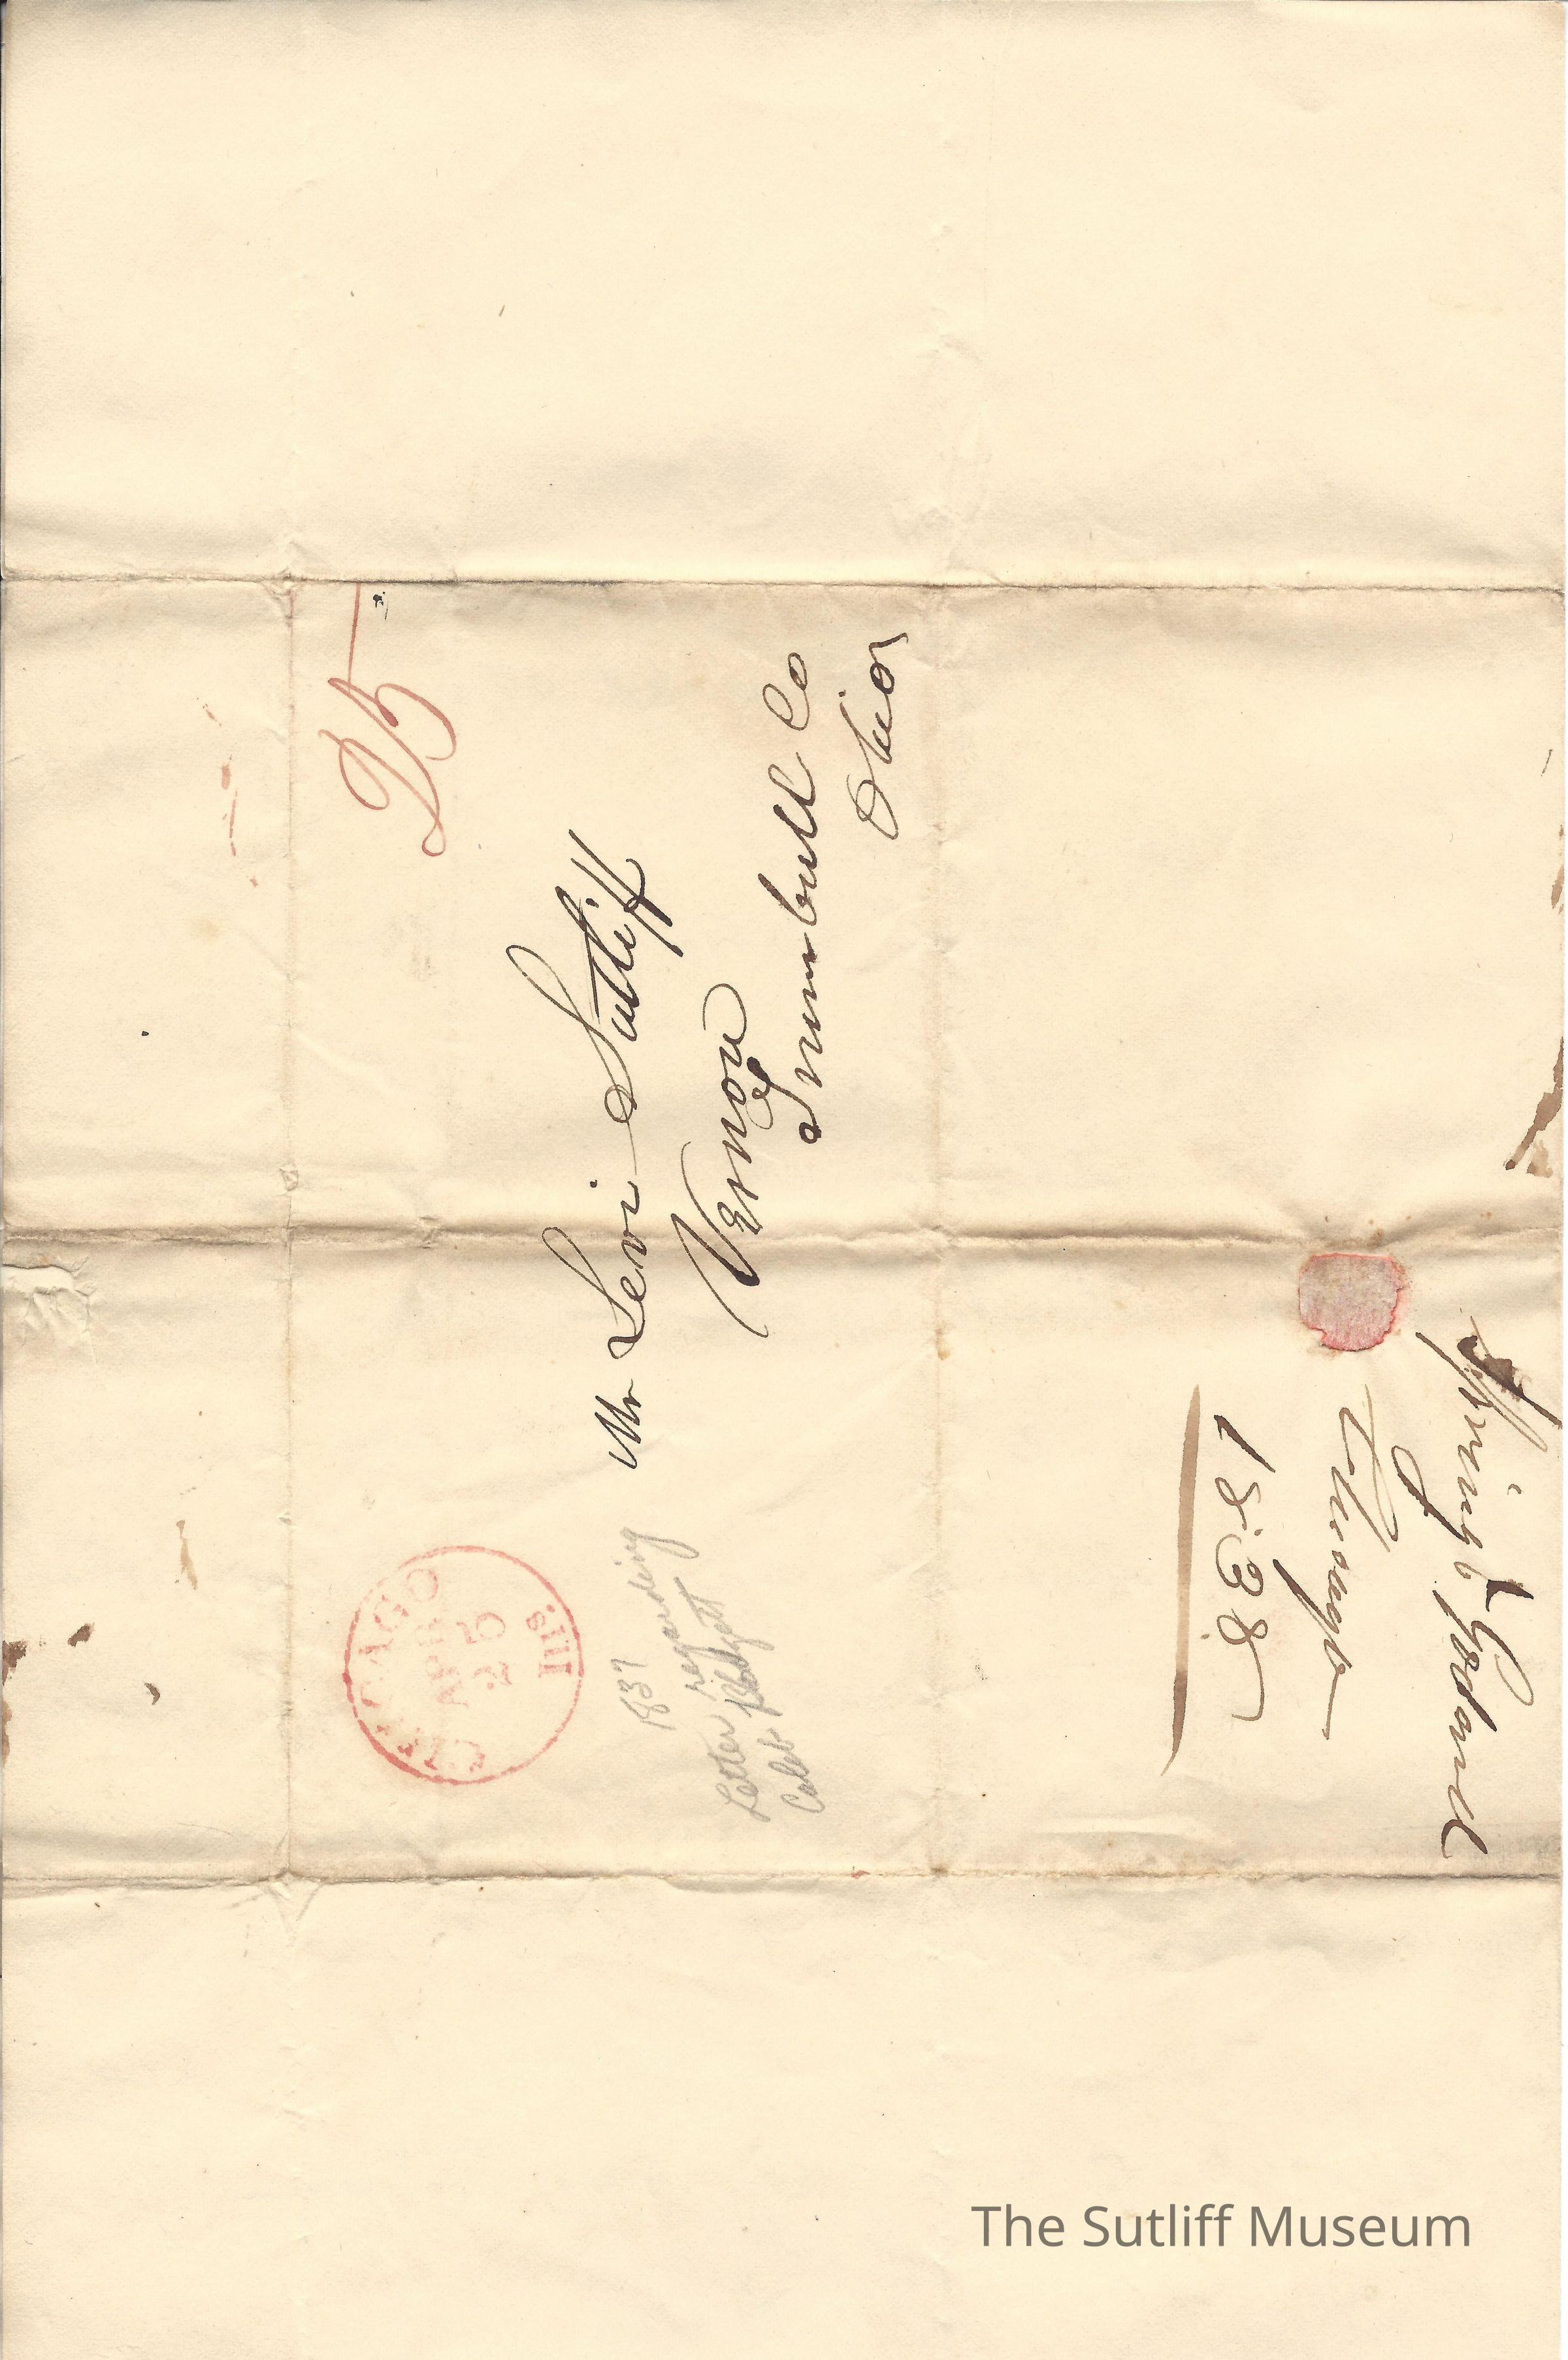 25
Mr Levi Sutliff
Vernon
Trumbull Co
Ohio
CHICAGO
APR
25
Ills.
1837
Letter regarding
Caleb Blodgett
Spring & Goodanll
Chicago
1838
The Sutliff Museum